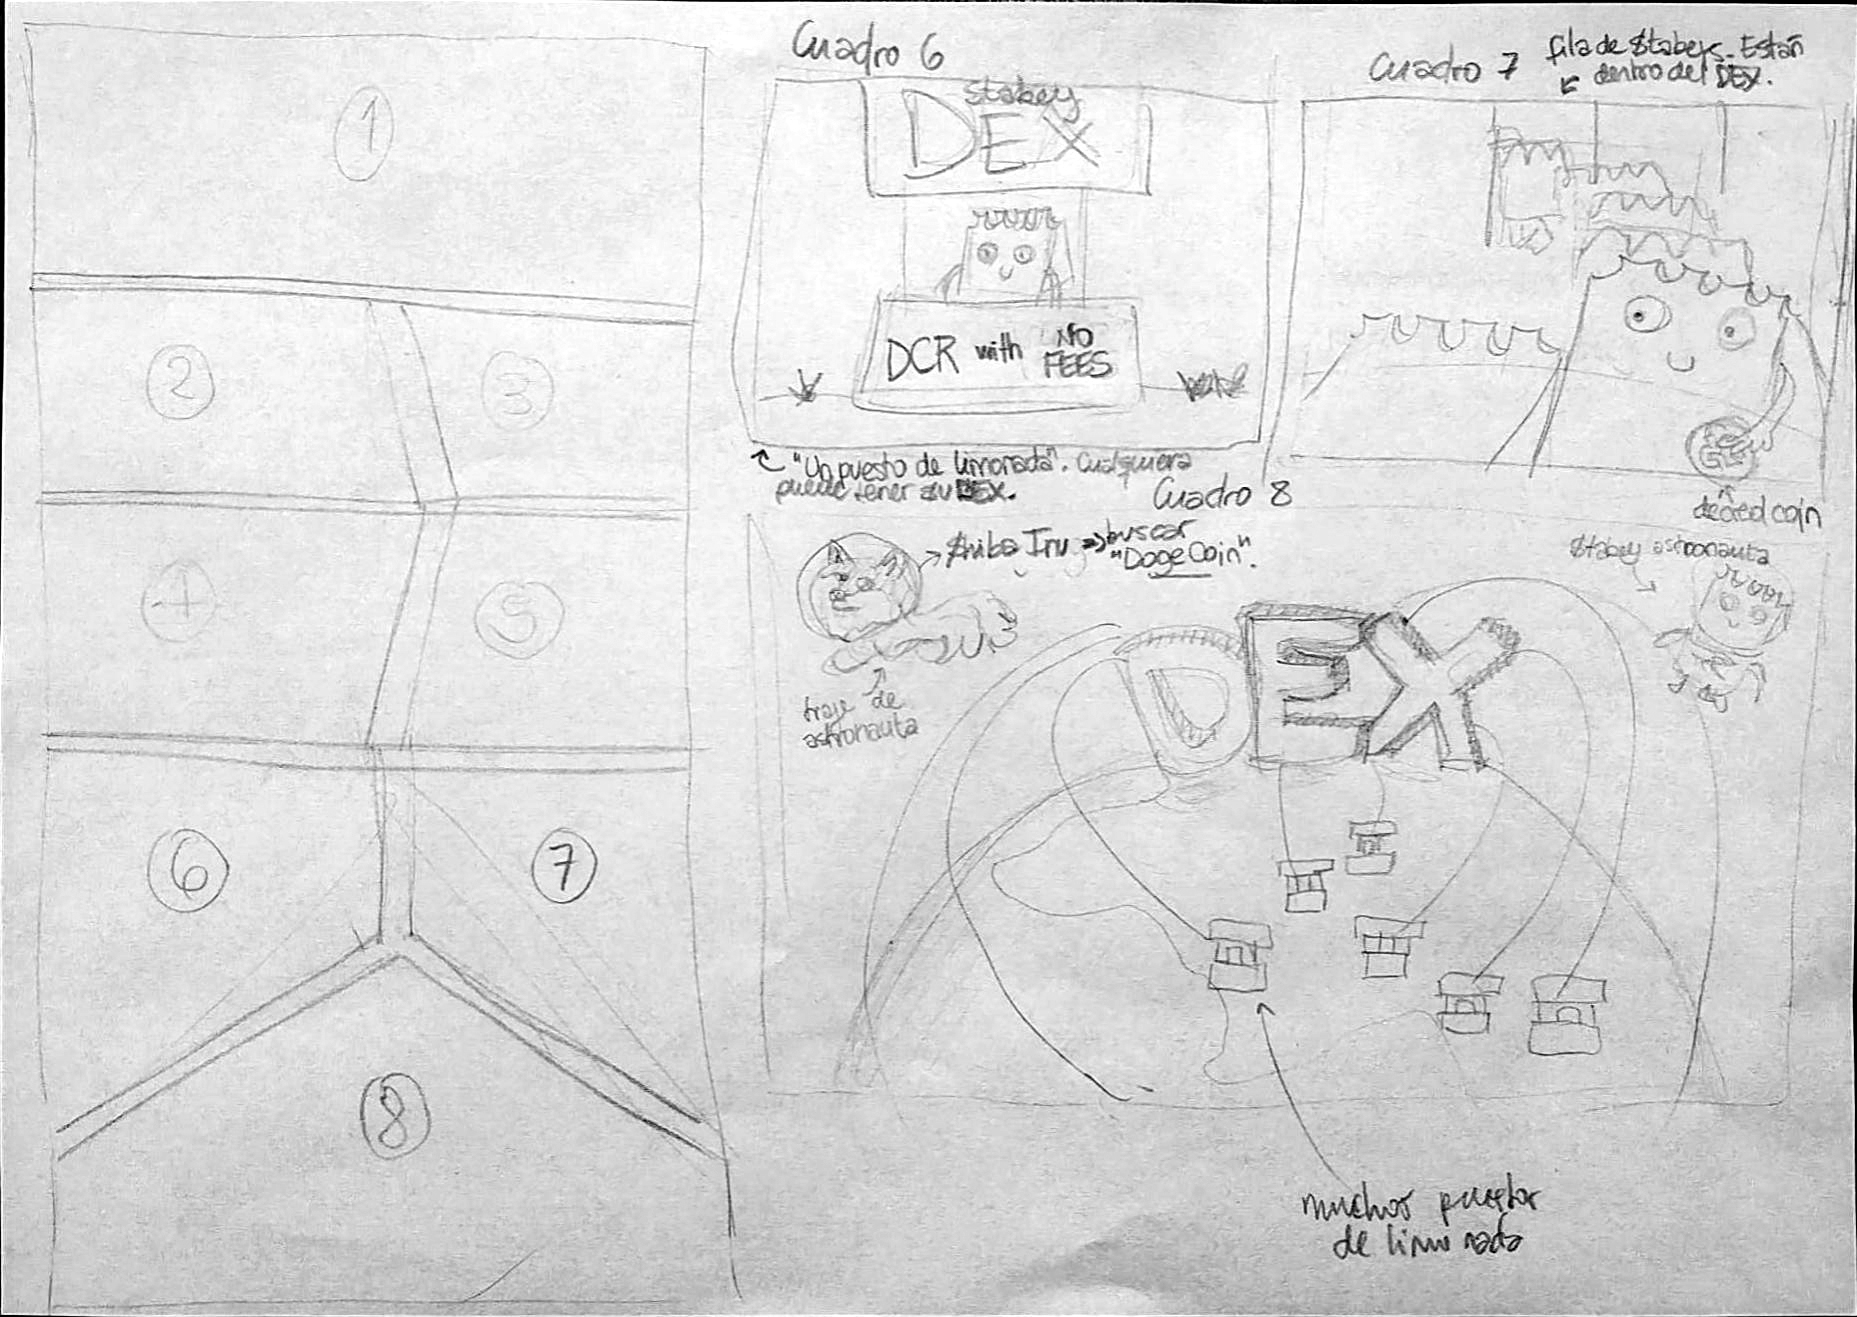 1
2
3
4
5
6
7
8
Cuadro 6
Stabey
DEX
DCR with NO
FEES
"Un puesto de limonada". Cualquiera
puede tener su DEX.
Cuadro 7
fila de Stabeys. Están
dentro del DEX.
decred coin
Cuadro 8
Shiba Inu => buscar
"DogeCoin".
traje de
astronauta
Stabey astronauta
DEX
muchos puestos
de limonada